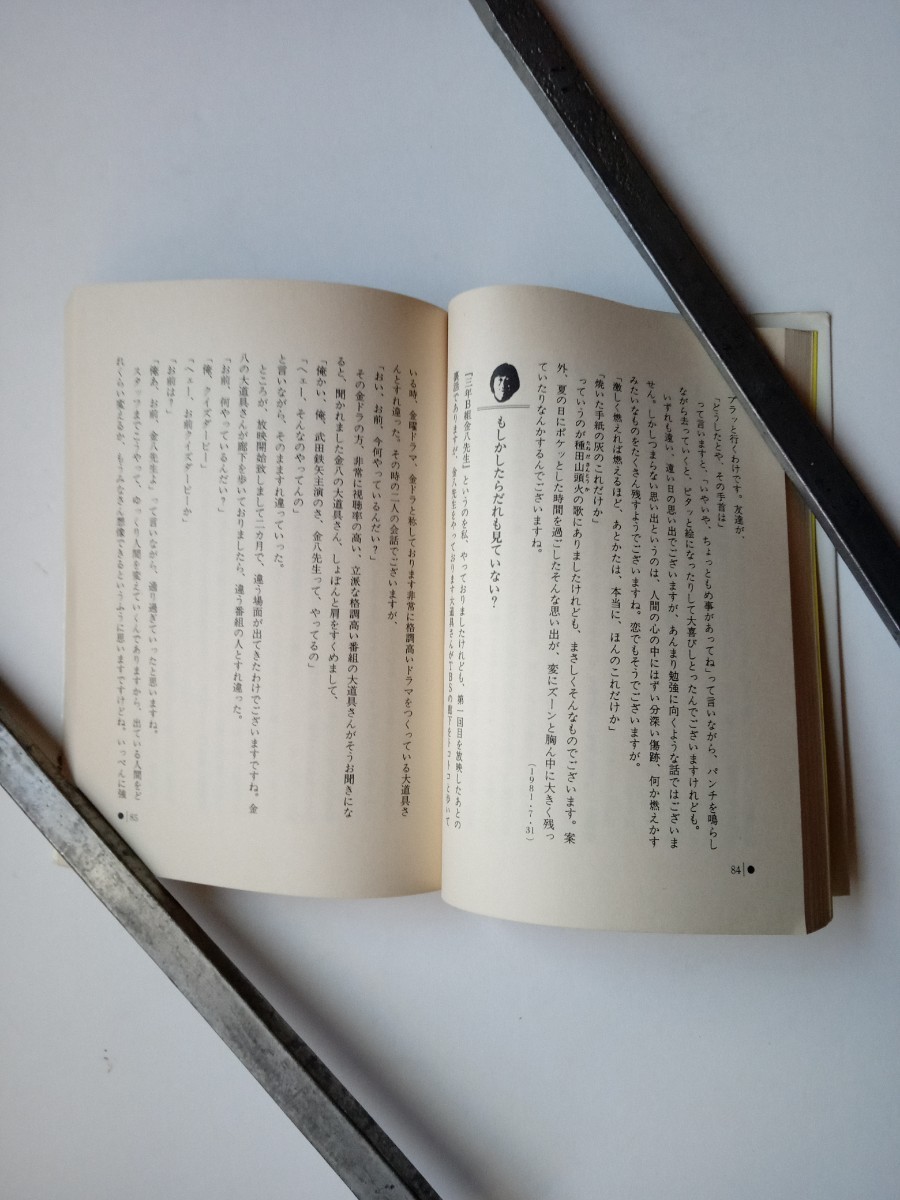 ブラッと行くわけです。友達が、
「どうしたとや、その手首は」
って言いますと、「いやいや、ちょっともめ事があってね」って言いながら、パンチを鳴らし
ながら去っていくと、ピタッと絵になったりして大喜びしとったんでございますけれども。
いずれも遠い、遠い日の思い出でございますが、あんまり勉強に向くような話ではございま
せん。しかしつまらない思い出というのは、人間の心の中にはずい分深い傷跡、何か燃えかす
みたいなものをたくさん残すようでございますね。恋でもそうでございますが。
「激しく燃えれば燃えるほど、あとかたは、本当に、ほんのこれだけか」
「焼いた手紙の灰のこれだけか」
っていうのが種田山頭火の歌にありましたけれども、まさしくそんなものでございます。案
外、夏の日にボケッとした時間を過ごしたそんな思い出が、変にズーンと胸ん中に大きく残っ
ていたりなんかするんでございますね。
(1981・7・31)
もしかしたらだれも見ていない？
『三年B組金八先生』というのを私、やっておりましたけれども、第一回目を放映したあとの
裏話でありますが、金八先生をやっております大道具さんがTBSの廊下をトコトコと歩いて
84
いる時、金曜ドラマ、金ドラと称しております非常に格調高いドラマをつくっている大道具さ
んとすれ違った。その時の二人の会話でございますが、
「おい、お前、今何やっているんだい？」
その金ドラの方、非常に視聴率の高い、立派な格調高い番組の大道具さんがそうお聞きにな
ると、聞かれました金八の大道具さん、しょぼんと肩をすくめまして、
「俺かい、俺、武田鉄矢主演のさ、金八先生って、やってるの」
「ヘェー、そんなのやってんの」
と言いながら、そのまますれ違っていった。
ところが、放映開始致しまして二カ月で、違う場面が出てきたわけでございますですね。金
八の大道具さんが廊下を歩いておりましたら、違う番組の人とすれ違った。
「お前、何やっているんだい？」
「俺、クイズダービー」
「ヘェー、お前クイズダービーか」
「お前は？」
「俺あ、お前、金八先生よ」って言いながら、通り過ぎていったと思いますね。
スタッフまでこうやって、ゆっくり人間を変えていくんでありますから、出ている人間をど
れくらい変えるか、もうみなさん想像できるというふうに思いますですけどね、いっぺんに強
85